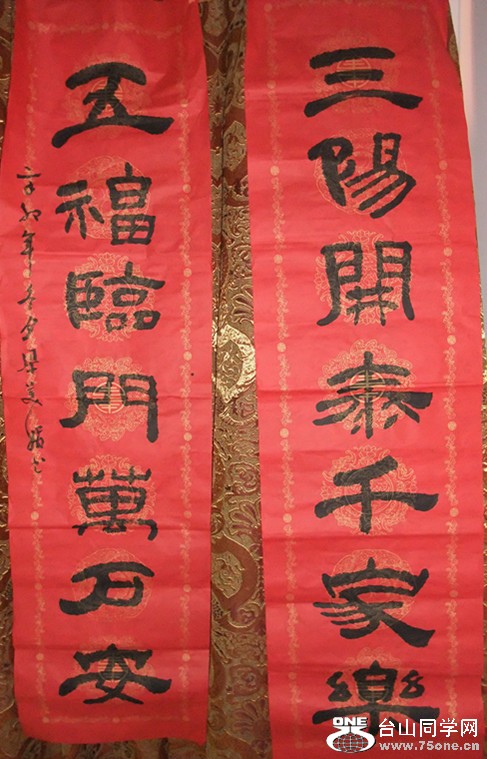 三陽開泰千家樂
五福臨門萬戶安
辛卯年
ONE
台山同学网
www.75one.cn